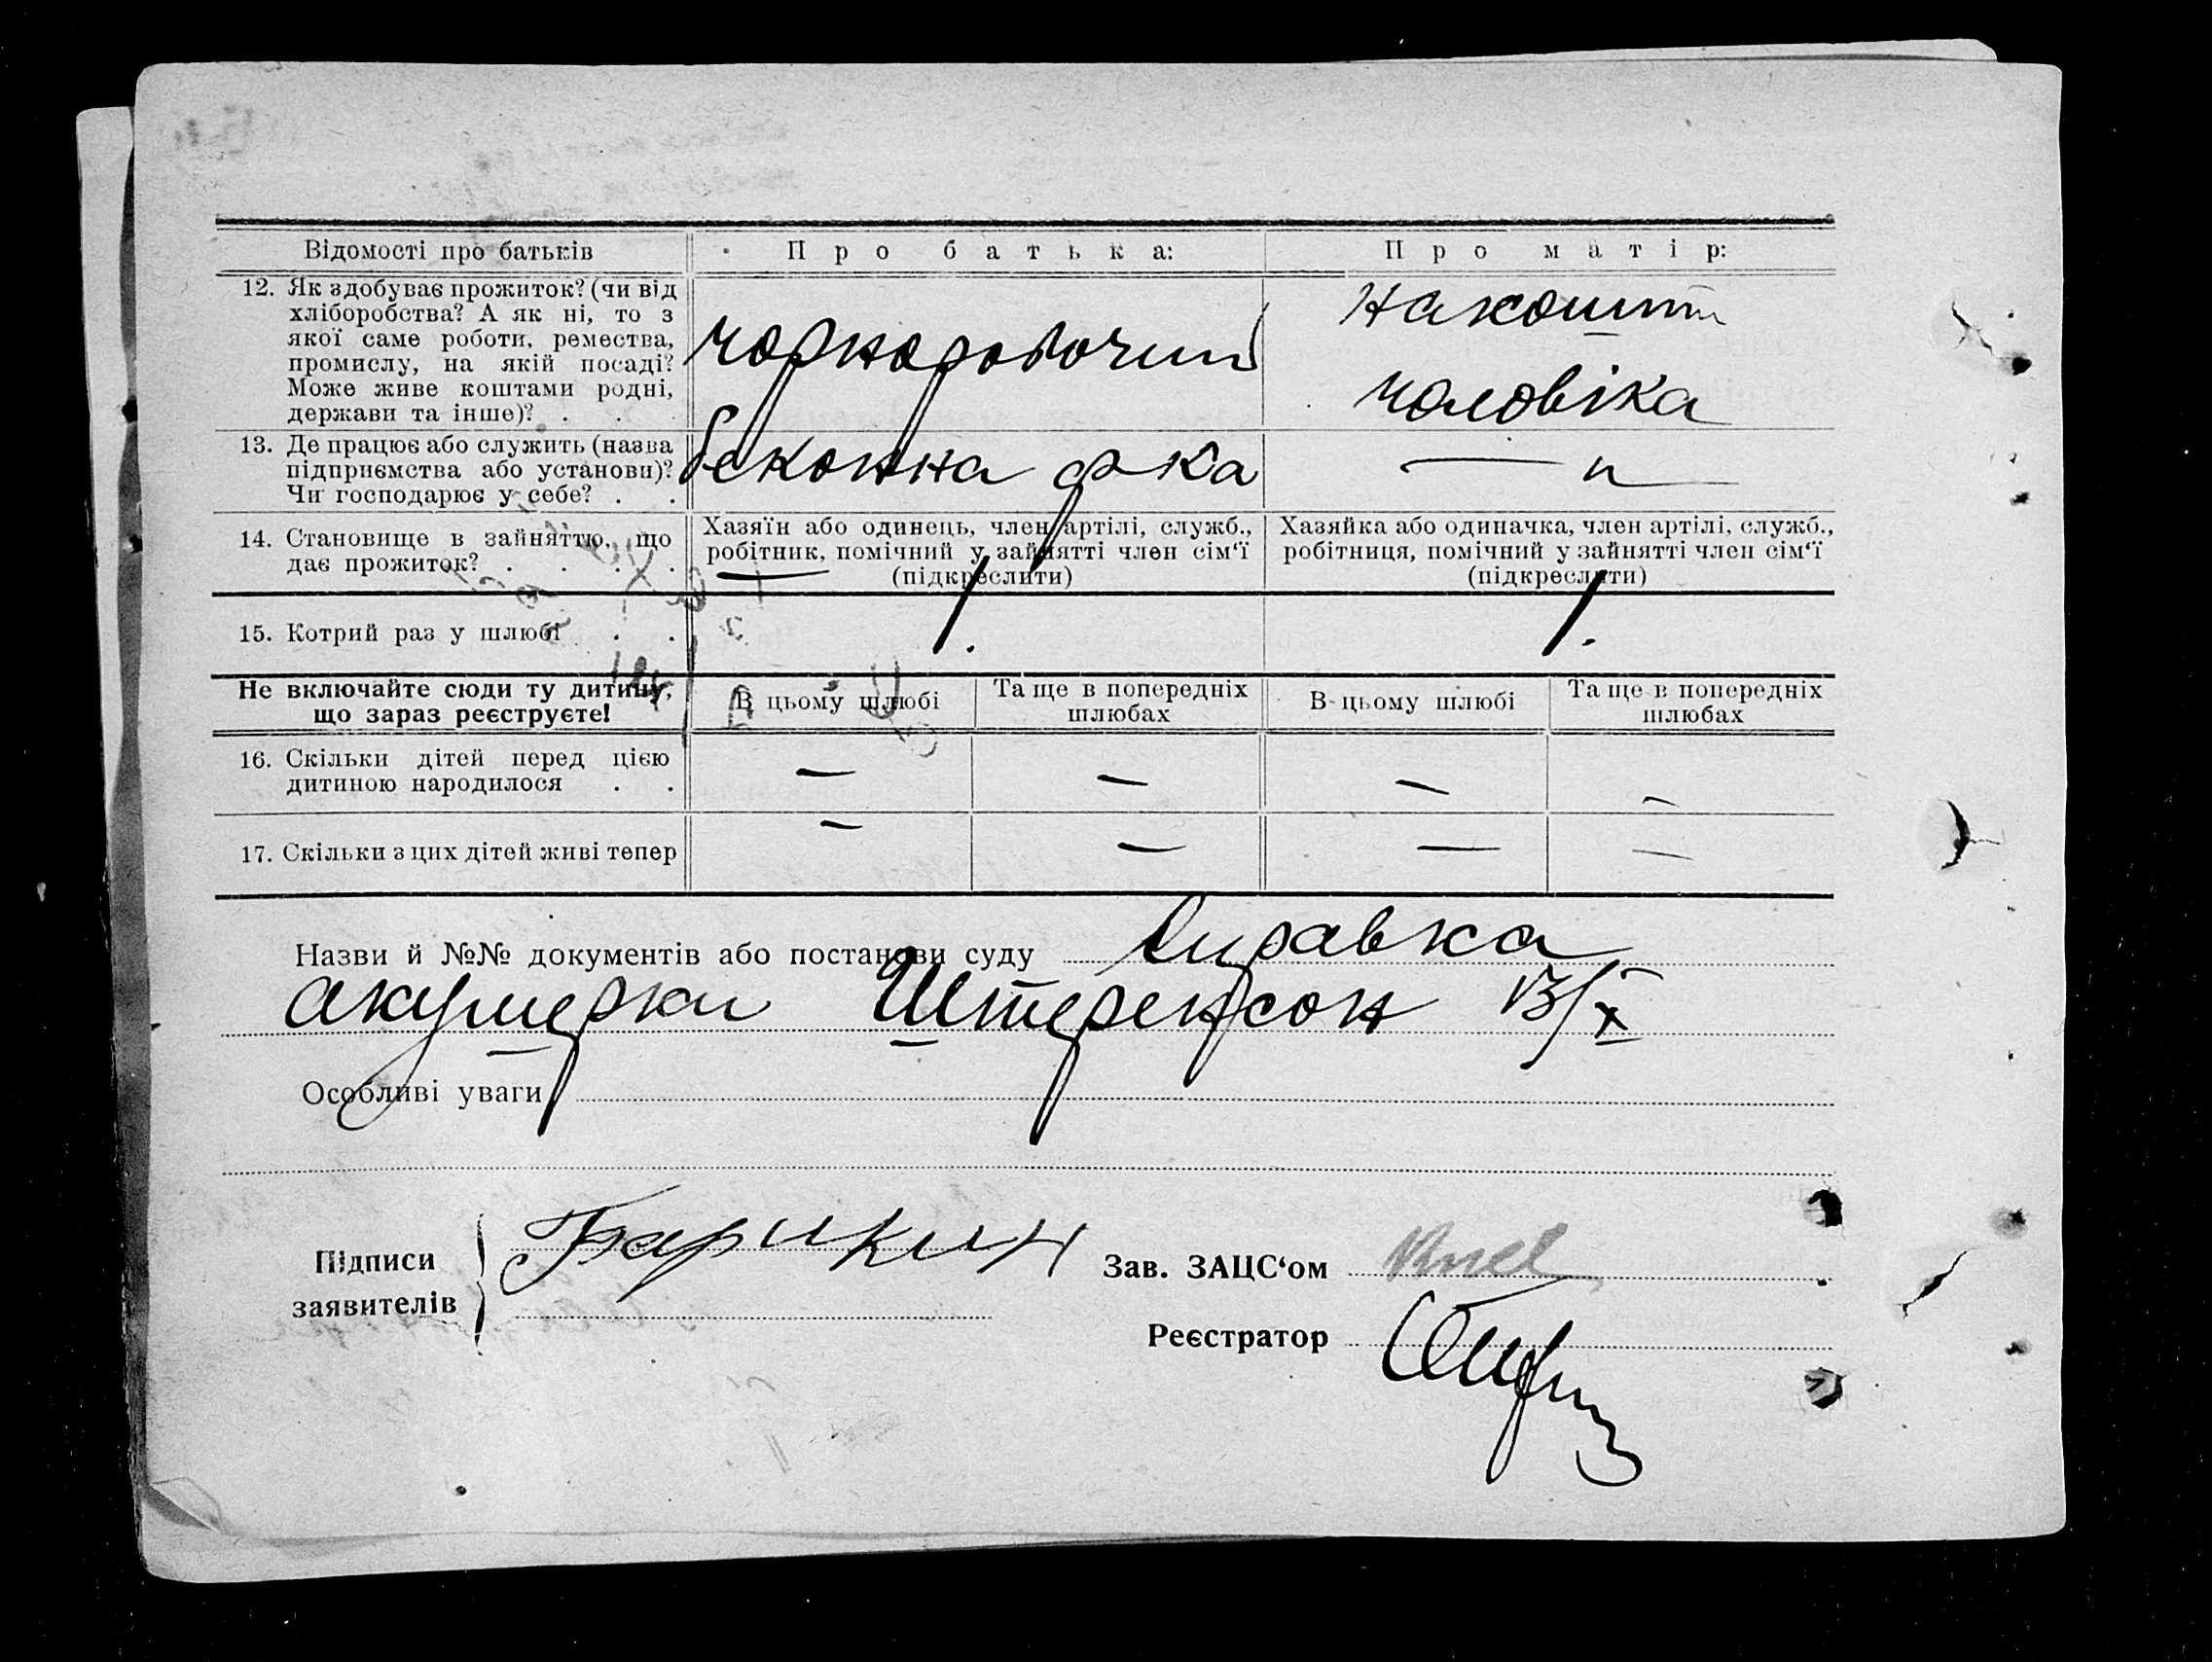 Відомості про батьків
Про батька:
Про матір:
12. Як здобуває прожиток? (чи від
хліборобства? А як ні, то з
якої саме роботи, ремества,
промислу, на якій посаді?
Може живе коштами родні,
держави та інше)? . .
чорноробочий
На кошти
чоловіка
13. Де працює або служить (назва
підприємства або установи)?
Чи господарює у себе? . .
беконна ф-ка
— „ —
14. Становище в зайняттю, що
дає прожиток? . . . .
Хазяїн або одинець, член артілі, служб.,
робітник, помічний у зайнятті член сім'ї
(підкреслити)
Хазяйка або одиначка, член артілі, служб.,
робітниця, помічний у зайнятті член сім'ї
(підкреслити)
15. Котрий раз у шлюбі . .
1.
1.
Не включайте сюди ту дитину,
що зараз реєструєте!
В цьому шлюбі
Та ще в попередніх
шлюбах
В цьому шлюбі
Та ще в попередніх
шлюбах
16. Скільки дітей перед цією
дитиною народилося . .
— — — —
17. Скільки з цих дітей живі тепер
— — — —
Назви й №№ документів або постанови суду Справка
акушерки Штеренсон 13/X
Особливі уваги
Підписи
заявителів
Барикин
Зав. ЗАЦС'ом
Реєстратор